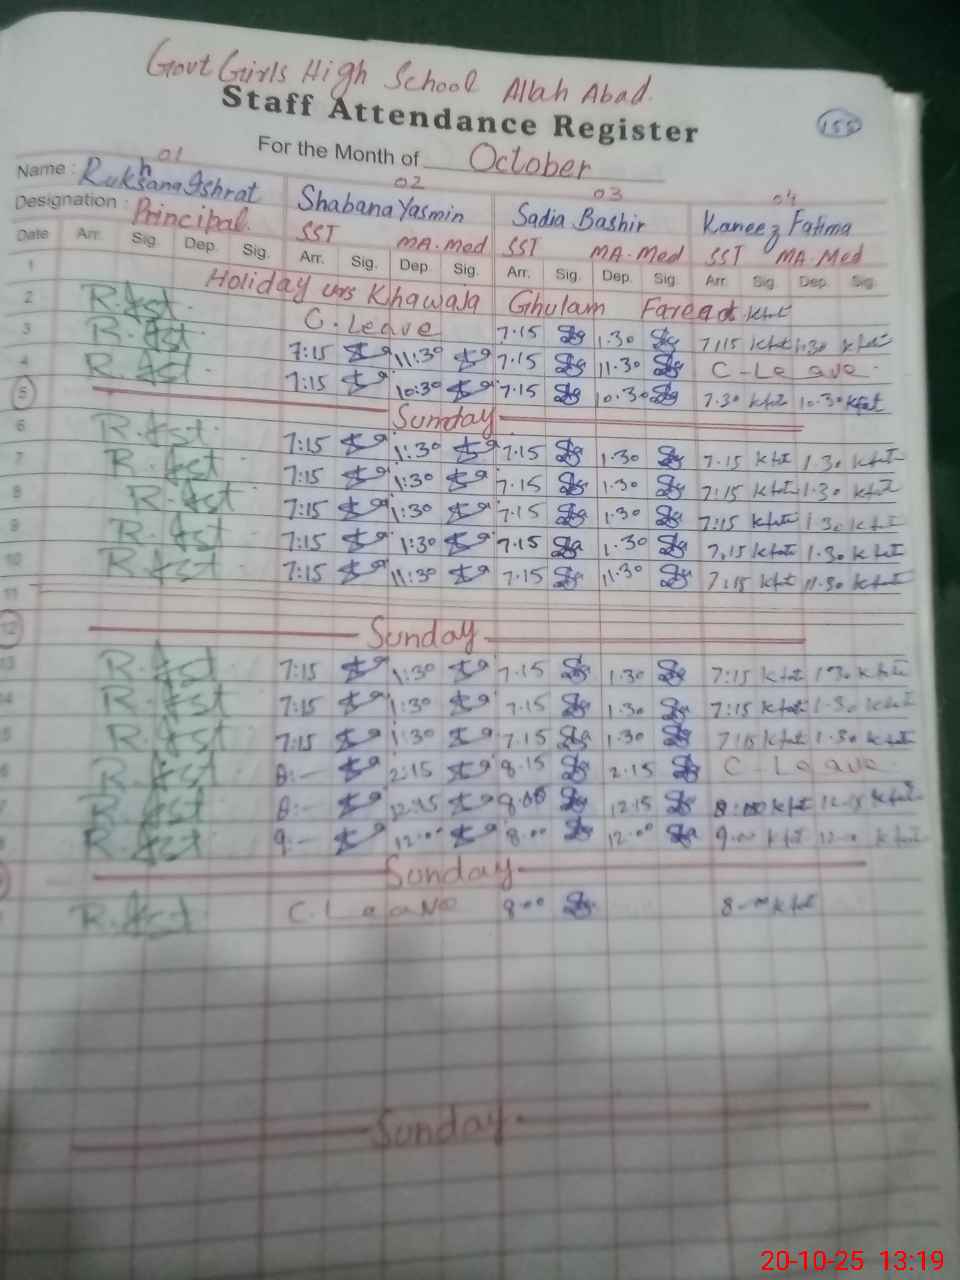 Govt Girls High School Allah Abad.
Staff Attendance Register
155
For the Month of October
01 02 03 04
Name : Rukhsana Ishrat Shabana Yasmin Sadia Bashir Kaneez Fatima
Designation : Principal. SST MA.med SST MA.Med SST MA.Med
Date Arr. Sig. Dep. Sig. Arr. Sig. Dep. Sig. Arr. Sig. Dep. Sig. Arr. Sig. Dep. Sig.
1 Holiday urs Khawaja Ghulam Fareed
2 C.Leave 7.15 1.30 7:15 1.30
3 7:15 11:30 7.15 11.30 C-Leave
4 7:15 10:30 7.15 10.30 7.30 10.30
5 Sunday
6 7:15 1:30 7.15 1.30 7.15 1.30
7 7:15 1:30 7.15 1.30 7:15 1.30
8 7:15 1:30 7.15 1.30 7:15 1.30
9 7:15 1:30 7.15 1.30 7.15 1.30
10 7:15 11:30 7.15 11.30 7:15 11.30
11
12 Sunday
13 7:15 1:30 7.15 1.30 7:15 1.30
7:15 1:30 7.15 1.30 7:15 1.30
7:15 1:30 7.15 1.30 7:15 1.30
8:- 2:15 8.15 2.15 C-Leave
8:- 12:15 8.00 12.15 8:00 12.15
9:- 12:00 8.00 12.00 9.00 12.00
Sunday
C.Leave 8.00 8.00
Sunday
20-10-25 13:19